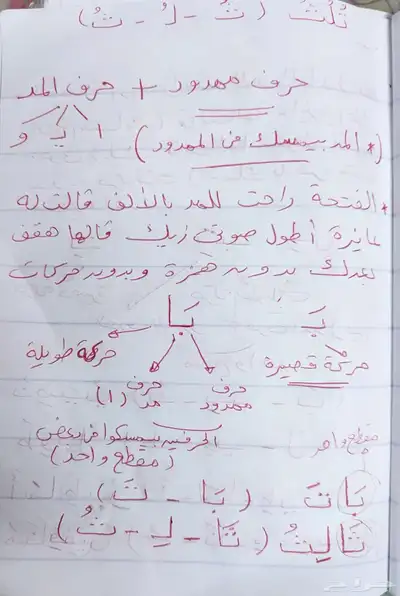 ثُلُثُ (ثُ - لُ - ثُ)
حرف ممدود + حرف المد
ا ي و
(* المد بيمسك في الممدود)
* الفتحة راحت للمد بالألف قالت له
عايزة أطول صوتي زيك قالها هقف
بعدك بدون همزة وبدون حركات
بَ بَا
حركة قصيرة حركة طويلة
حرف ممدود حرف مد (ا)
الحرفين بيمسكوا في بعض
(مقطع واحد)
مقطع واحد
بَاتَ (بَا - تَ)
ثَالِثُ (ثَا - لِ - ثُ)